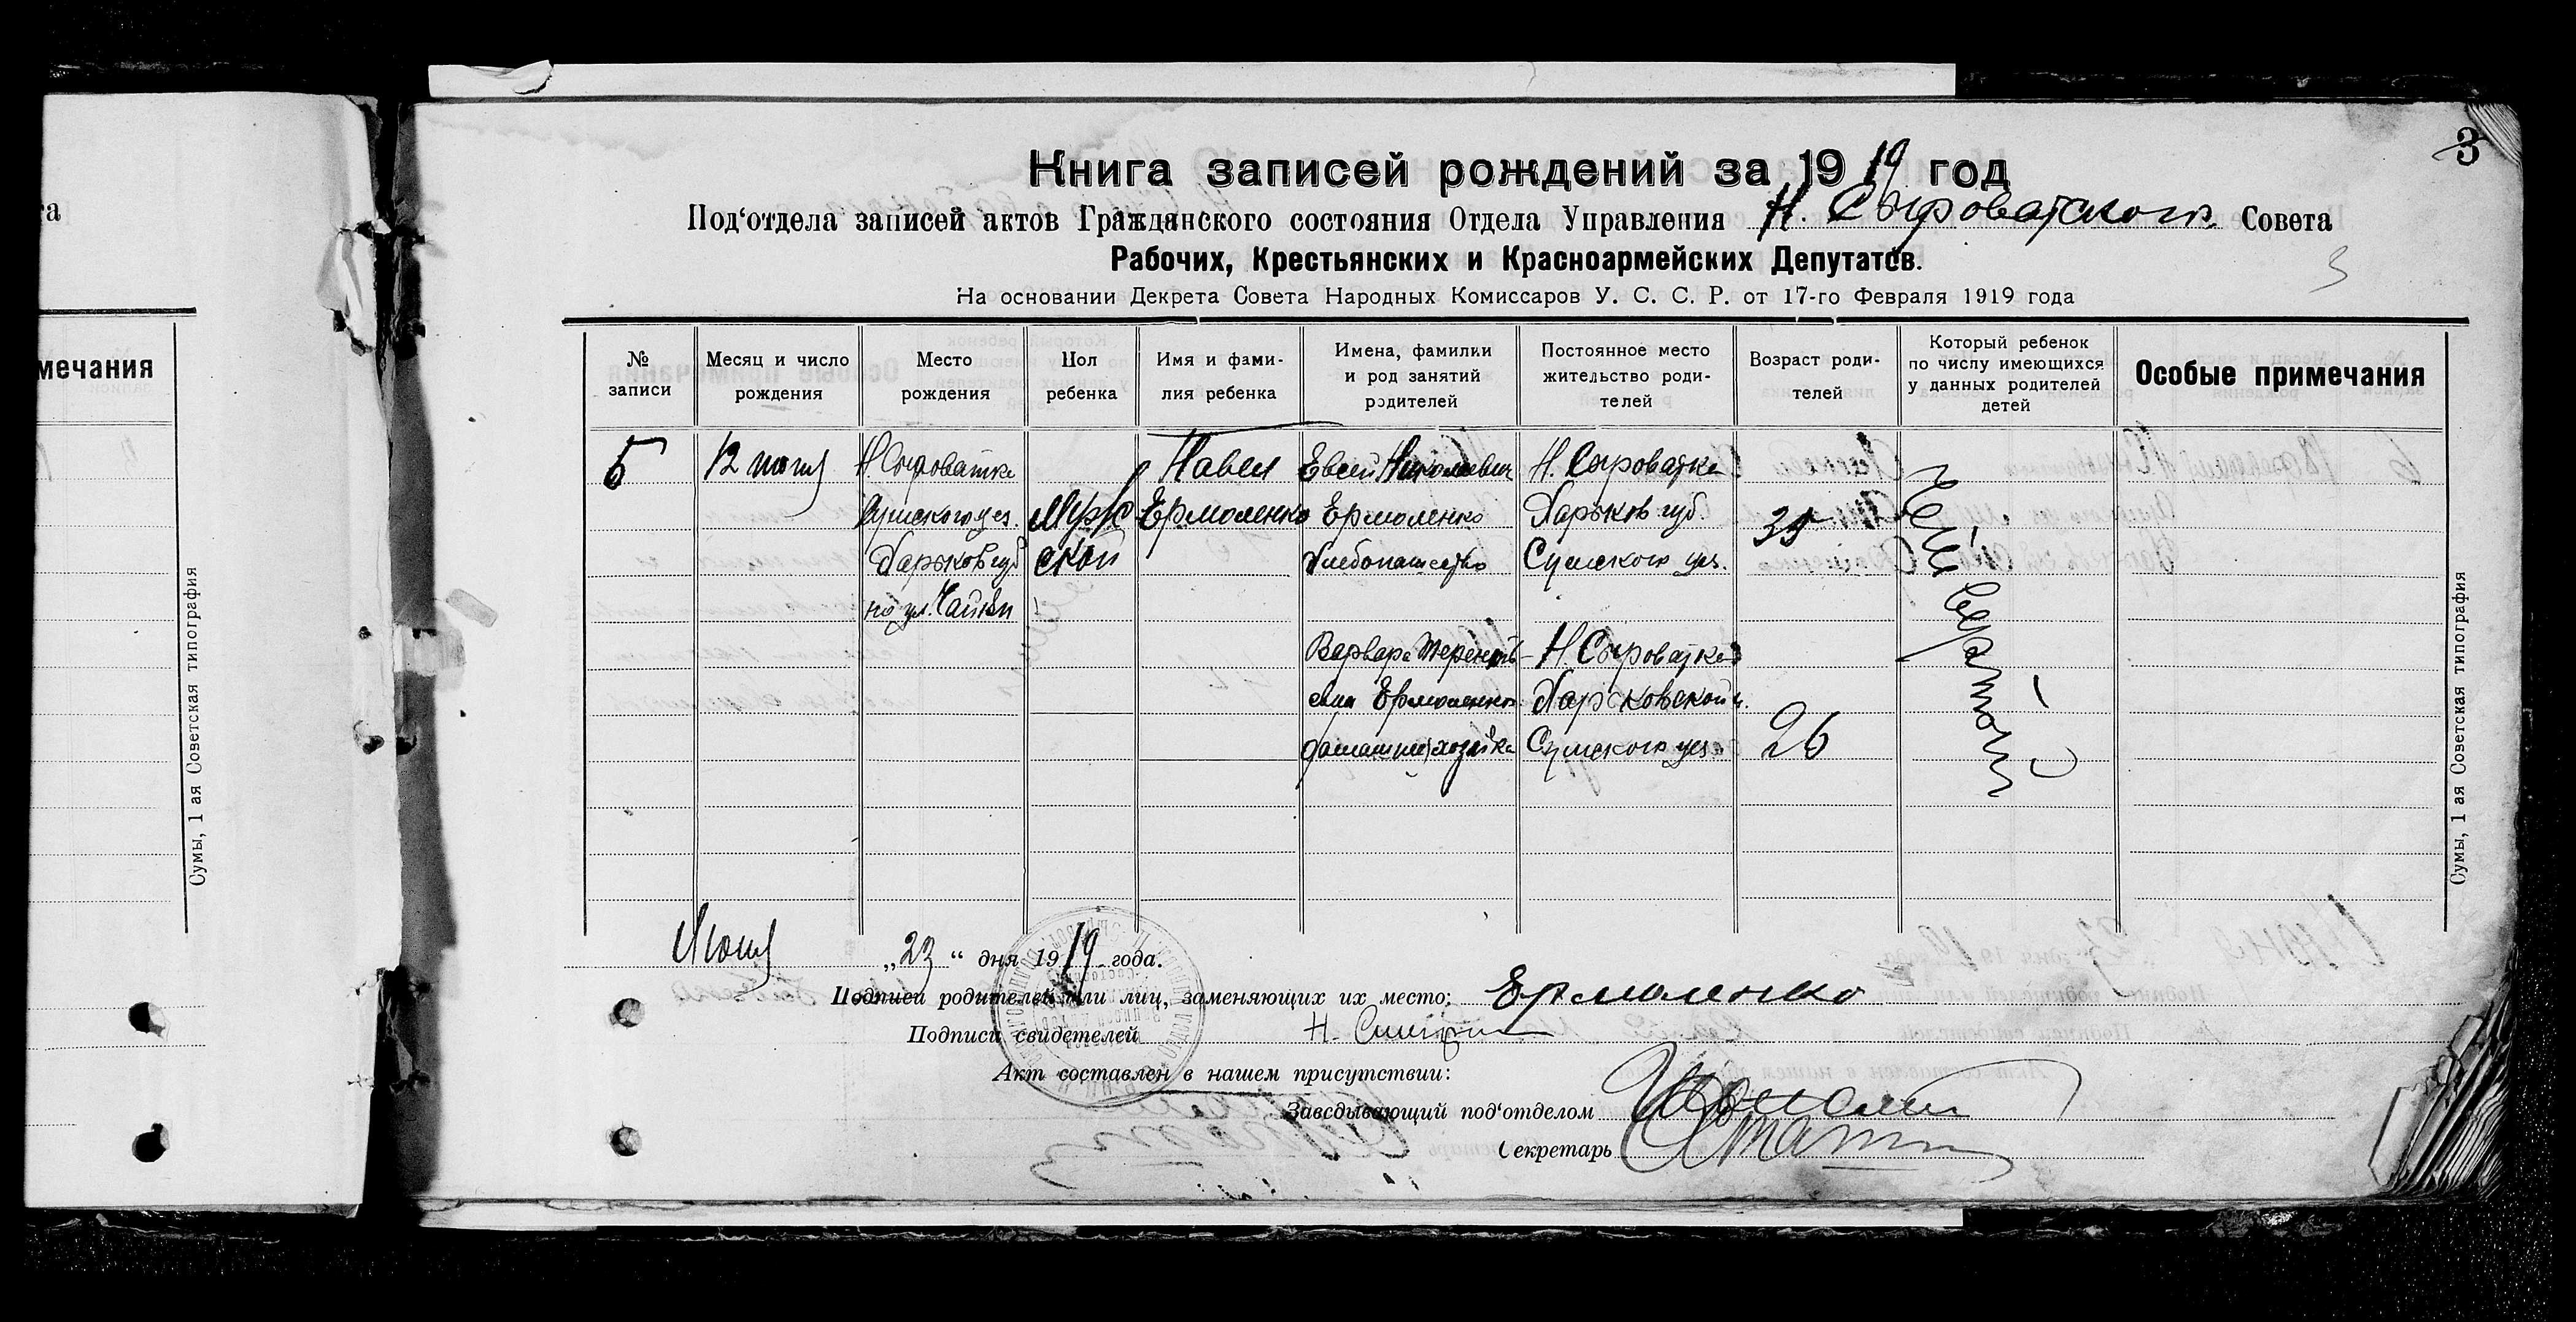 та
мечания
Сумы, 1 ая Советская типография
3
Книга записей рождений за 1919 год
Под'отдела записей актов Гражданского состояния Отдела Управления Н. Сыроватского Совета
Рабочих, Крестьянских и Красноармейских Депутатов.
3
На основании Декрета Совета Народных Комиссаров У. С. С. Р. от 17-го Февраля 1919 года
№ записи
Месяц и число рождения
Место рождения
Пол ребенка
Имя и фами-
лия ребенка
Имена, фамилии
и род занятий
родителей
Постоянное место
жительство роди-
телей
Возраст роди-
телей
Который ребенок
по числу имеющихся
у данных родителей
детей
Особые примечания
5
12 июня
Н. Сыроватка
Сумского уез.
Харьков губ
на ул.
Муж
ской
Павел
Ермоленко
Евсей Николаевич
Ермоленко
Хлебопашество
Н. Сыроватка
Харьков губ.
Сумского уез.
35
Четвертый
Варвара Терентьев-
евна Ермоленко
домашняя хозяйка
Н. Сыроватка
Харьковской г.
Сумского уез.
26
Сумы, 1 ая Советская типография
Июня „23“ дня 1919 года.
Подписи родителей или лиц, заменяющих их место: Ермоленко
Подписи свидетелей Н.
Акт составлен в нашем присутствии:
Заведывающий под'отделом
Секретарь